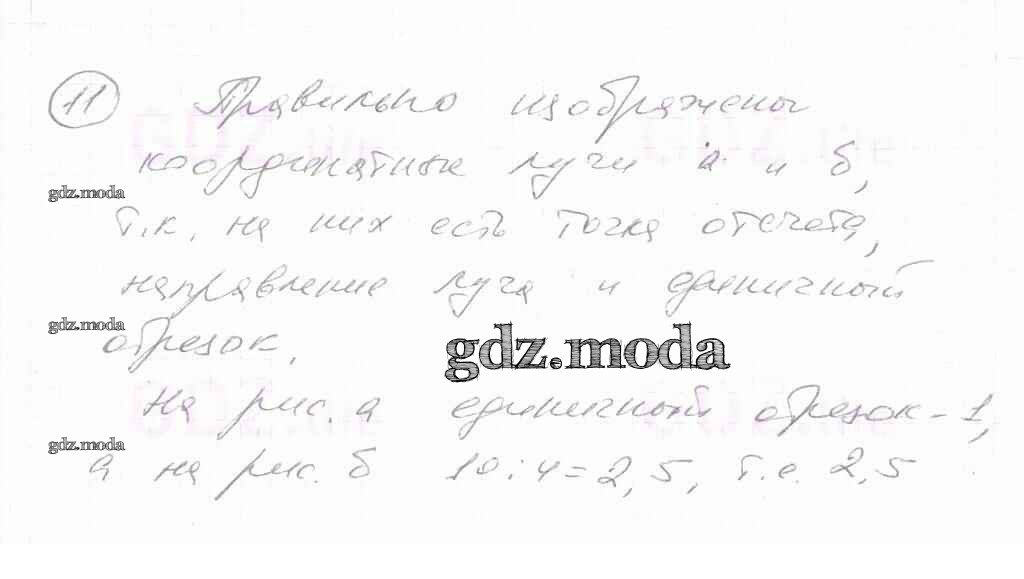 11 Правильно изображены
координатные лучи а и б,
gdz.moda
т.к. на них есть точка отсчета,
направление луча и единичный
gdz.moda
отрезок.
gdz.moda
На рис. а единичный отрезок - 1,
gdz.moda
а на рис. б 10:4=2,5, т.е. 2,5